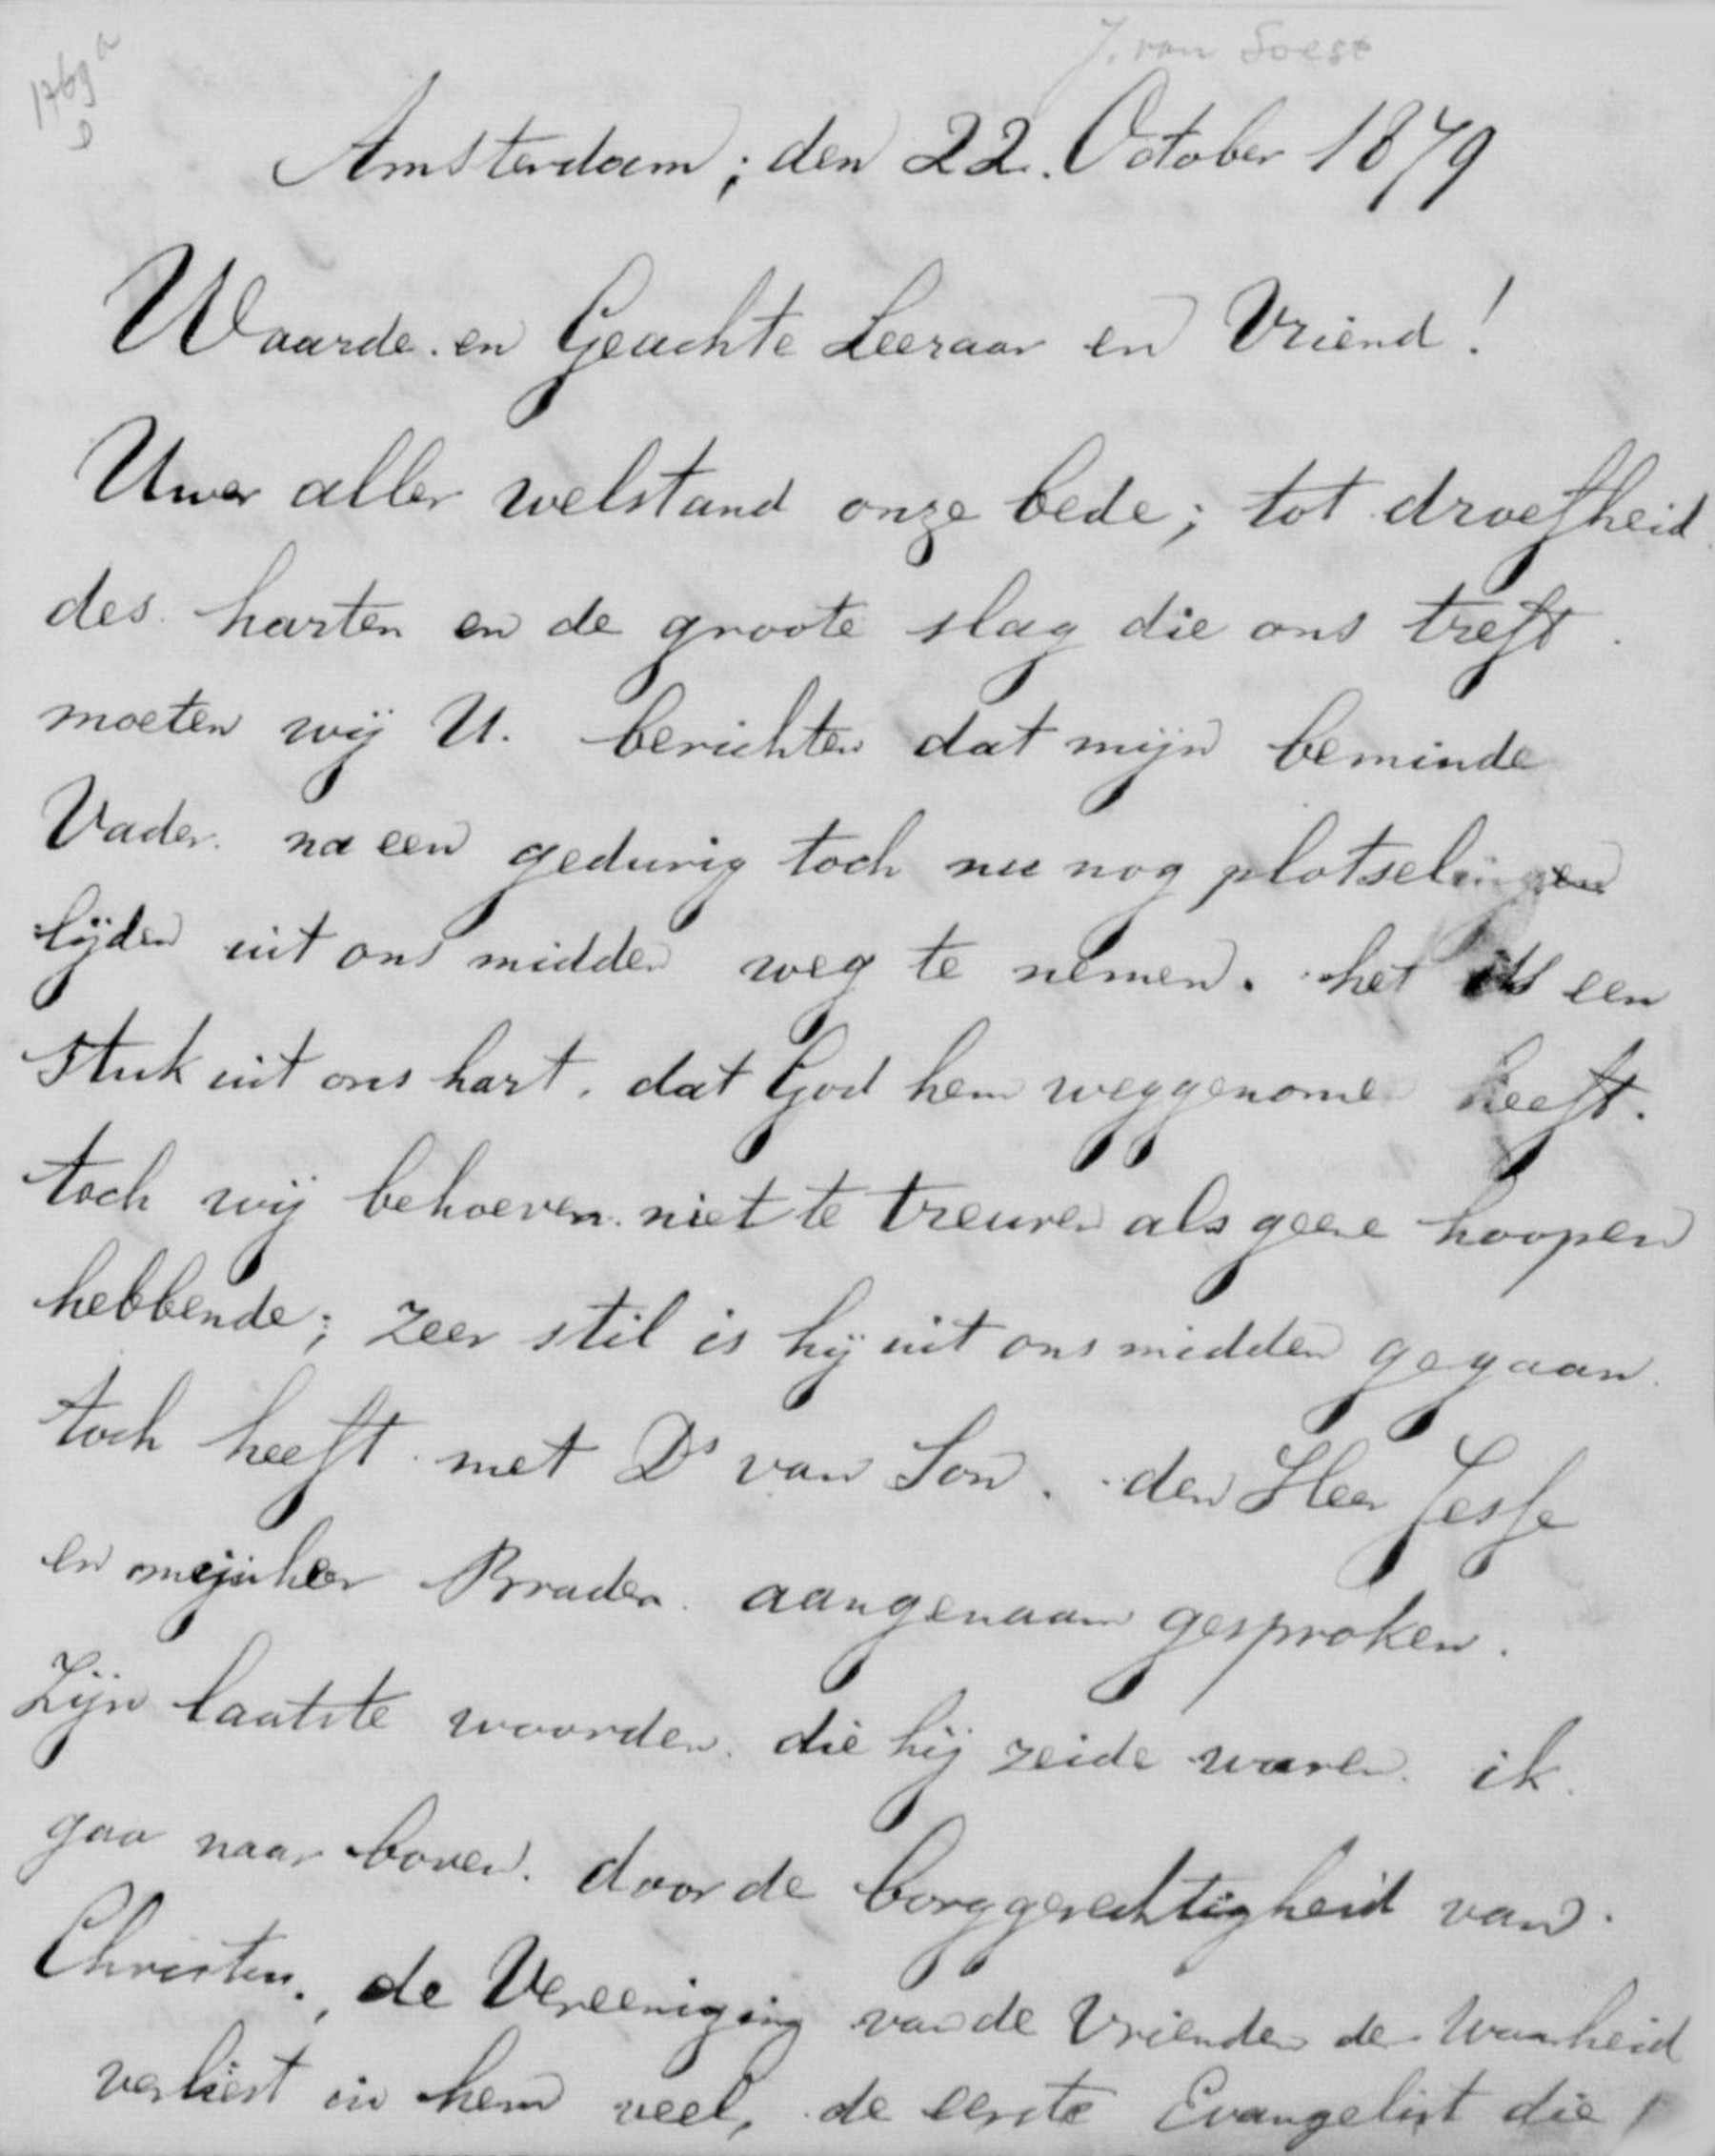 J. van Soest
1769a
Amsterdam; den 22. October 1879
Waarde. en Geachte Leeraar en Vriend!
Uwer aller welstand onze bede; tot droefheid
des harten en de groote slag die ons treft.
moeten wij U. berichten dat mijn beminde
Vader. na een gedurig toch nu nog plotselingen
lijden uit ons midden weg te nemen. het is een
stuk uit ons hart. dat God hem weggenomen heeft.
toch wij behoeven niet te treuren als geene hoopen
hebbende; zeer stil is hij uit ons midden gegaan.
toch heeft met Ds van Son. den Heer Jesse
en mijnheer Brader. aangenaam gesproken.
Zijn laatste woorden. die hij zeide waren. ik
gaa naar boven. door de borggerechtigheid van
Christus., de Vereeniging van de Vrienden der Waarheid
verliest in hem veel, de eerste Evangelist die